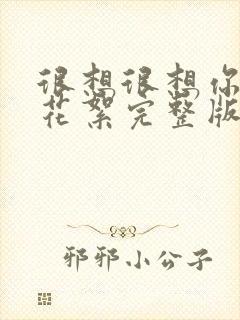 很想很想你
花絮完整版
邪邪小公子